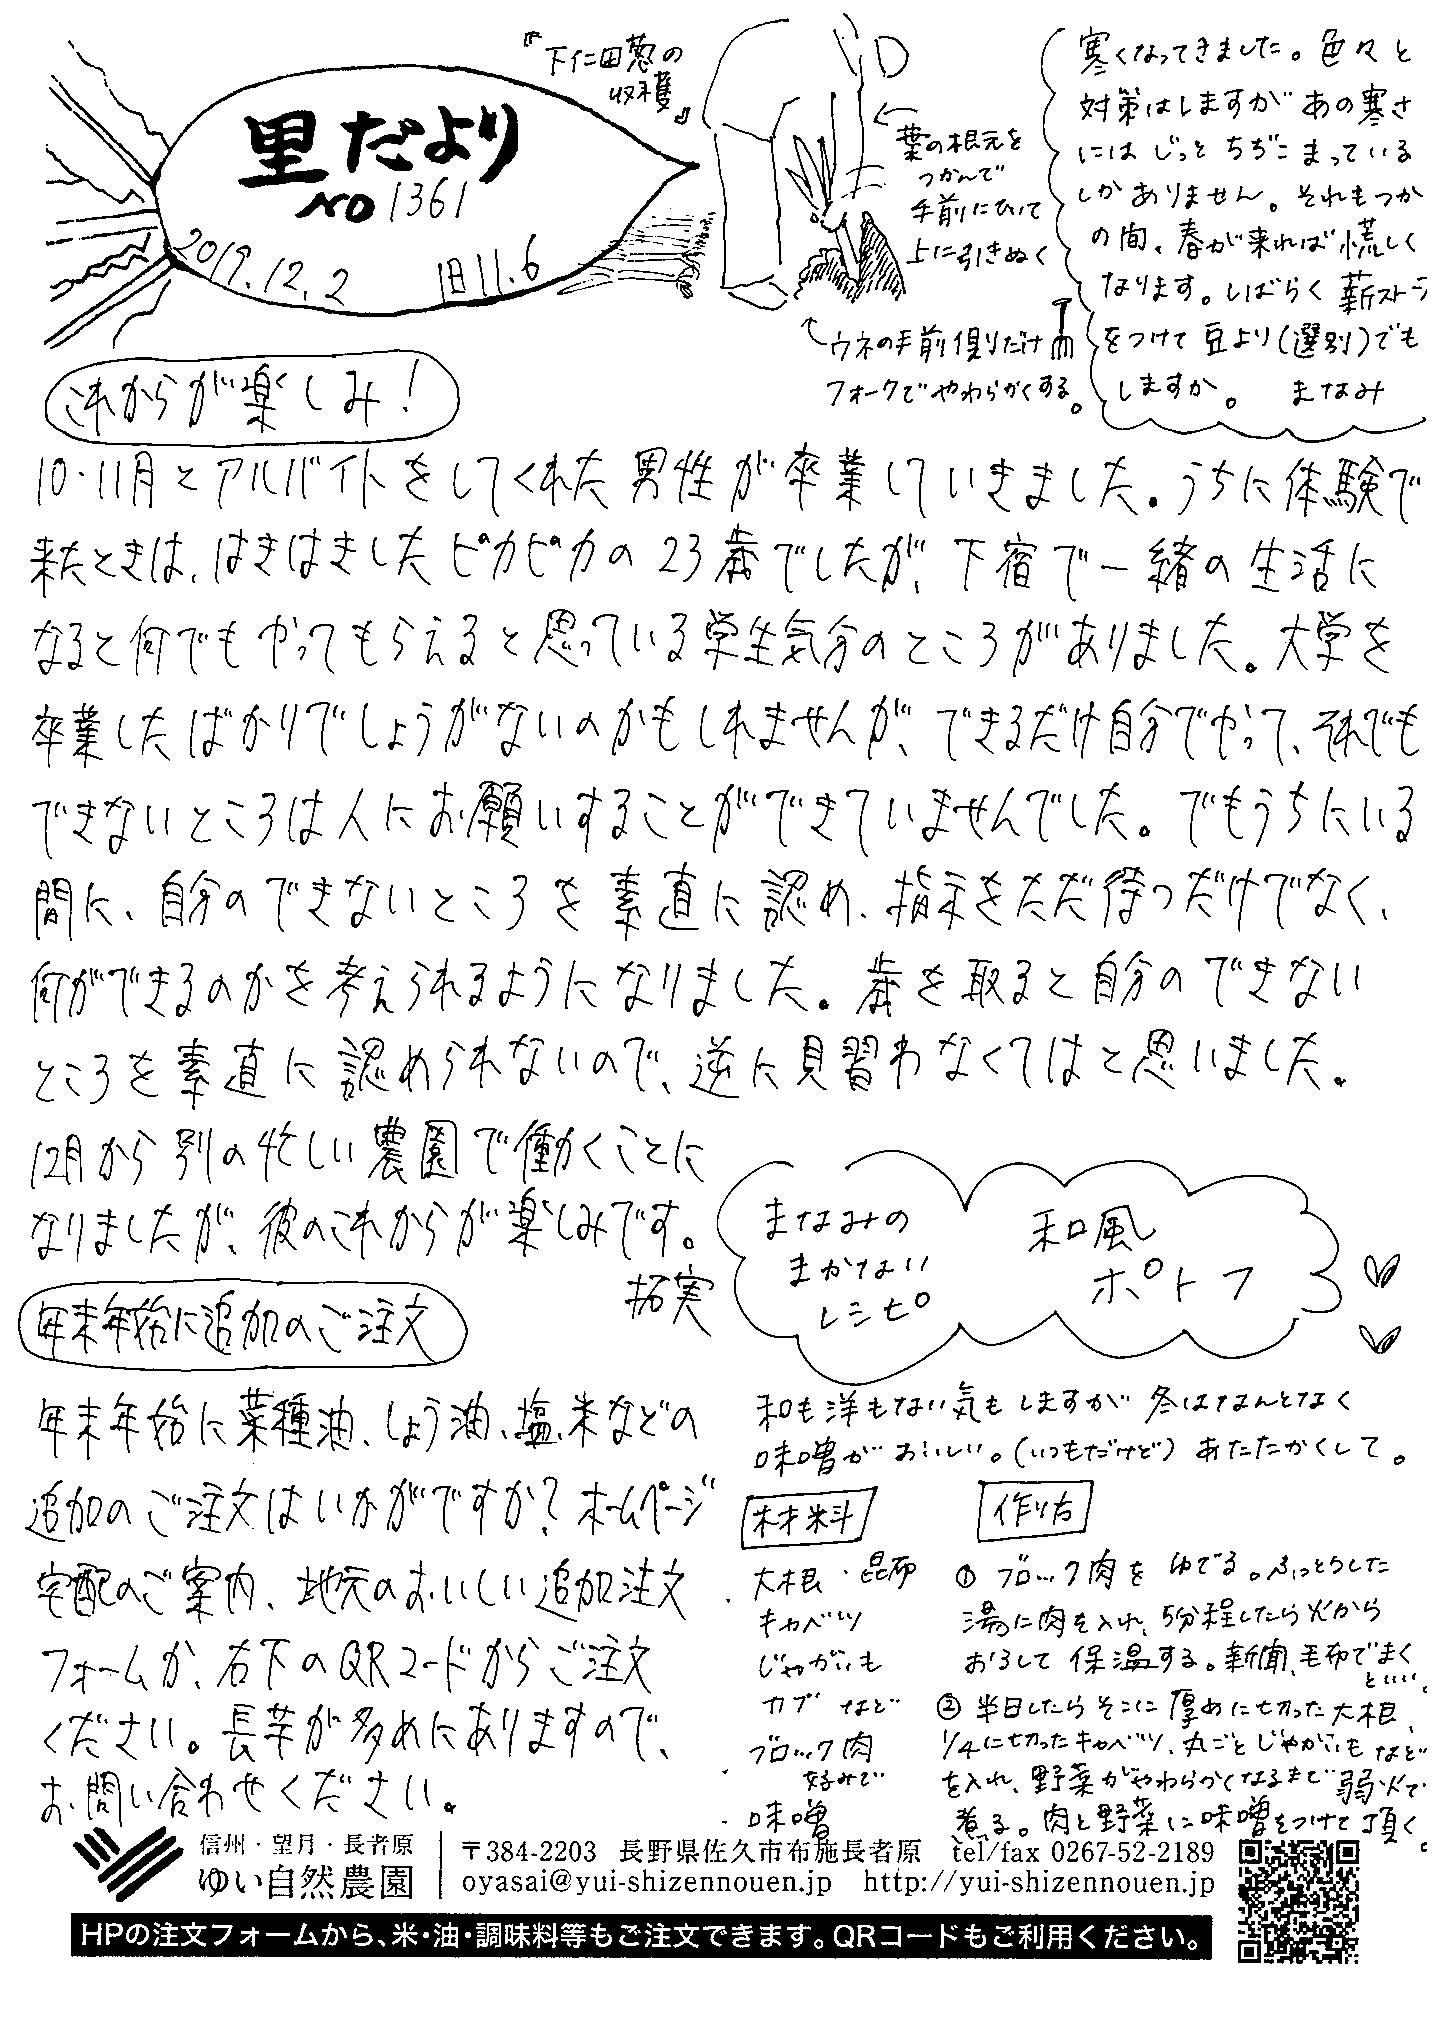 里だより
NO 1361
2019.12.2 旧11.6
『下仁田葱の
収穫』
葉の根元を
つかんで
手前にひいて
上に引きぬく
ウネの手前側だけ
フォークでやわらかくする。
寒くなってきました。色々と
対策はしますがあの寒さ
にはじっとちぢこまっている
しかありません。それもつか
の間、春が来れば慌しく
なります。しばらく薪ストー
をつけて豆より(選別)でも
しますか。 まなみ
これからが楽しみ!
10・11月とアルバイトをしてくれた男性が卒業していきました。うちに体験で
来たときは、はきはきしたピカピカの23歳でしたが、下宿で一緒の生活に
なると何でもやってもらえると思っている学生気分のところがありました。大学を
卒業したばかりでしょうがないのかもしれませんが、できるだけ自分でやって、それでも
できないところは人にお願いすることができていませんでした。でもうちにいる
間に、自分のできないところを素直に認め、指示をただ待つだけでなく、
何ができるのかを考えられるようになりました。歳を取ると自分のできない
ところを素直に認められないので、逆に見習わなくてはと思いました。
12月から別の忙しい農園で働くことに
なりましたが、彼のこれからが楽しみです。
拓実
年末年始に追加のご注文
年末年始に菜種油、しょう油、塩、米などの
追加のご注文はいかがですか?ホームページ
宅配のご案内、地元のおいしい追加注文
フォームか、右下のQRコードからご注文
ください。長芋が多めにありますので、
お問い合わせください。
まなみの
まかない
レシピ
和風
ポトフ
和も洋もない気もしますが冬はなんとなく
味噌がおいしい。(いつもだけど)あたたかくして。
材料
大根・昆布
キャベツ
じゃがいも
カブ など
ブロック肉
好みで
味噌
作り方
① ブロック肉をゆでる。ふっとうした
湯に肉を入れ、5分程したら火から
おろして保温する。新聞、毛布でまく
といい。
② 半日したらそこに厚めに切った大根、
1/4に切ったキャベツ、丸ごとじゃがいもなど
を入れ、野菜がやわらかくなるまで弱火で
煮る。肉と野菜に味噌をつけて頂く。
信州・望月・長者原
ゆい自然農園
〒384-2203 長野県佐久市布施長者原 tel/fax 0267-52-2189
oyasai@yui-shizennouen.jp http://yui-shizennouen.jp
HPの注文フォームから、米・油・調味料等もご注文できます。QRコードもご利用ください。